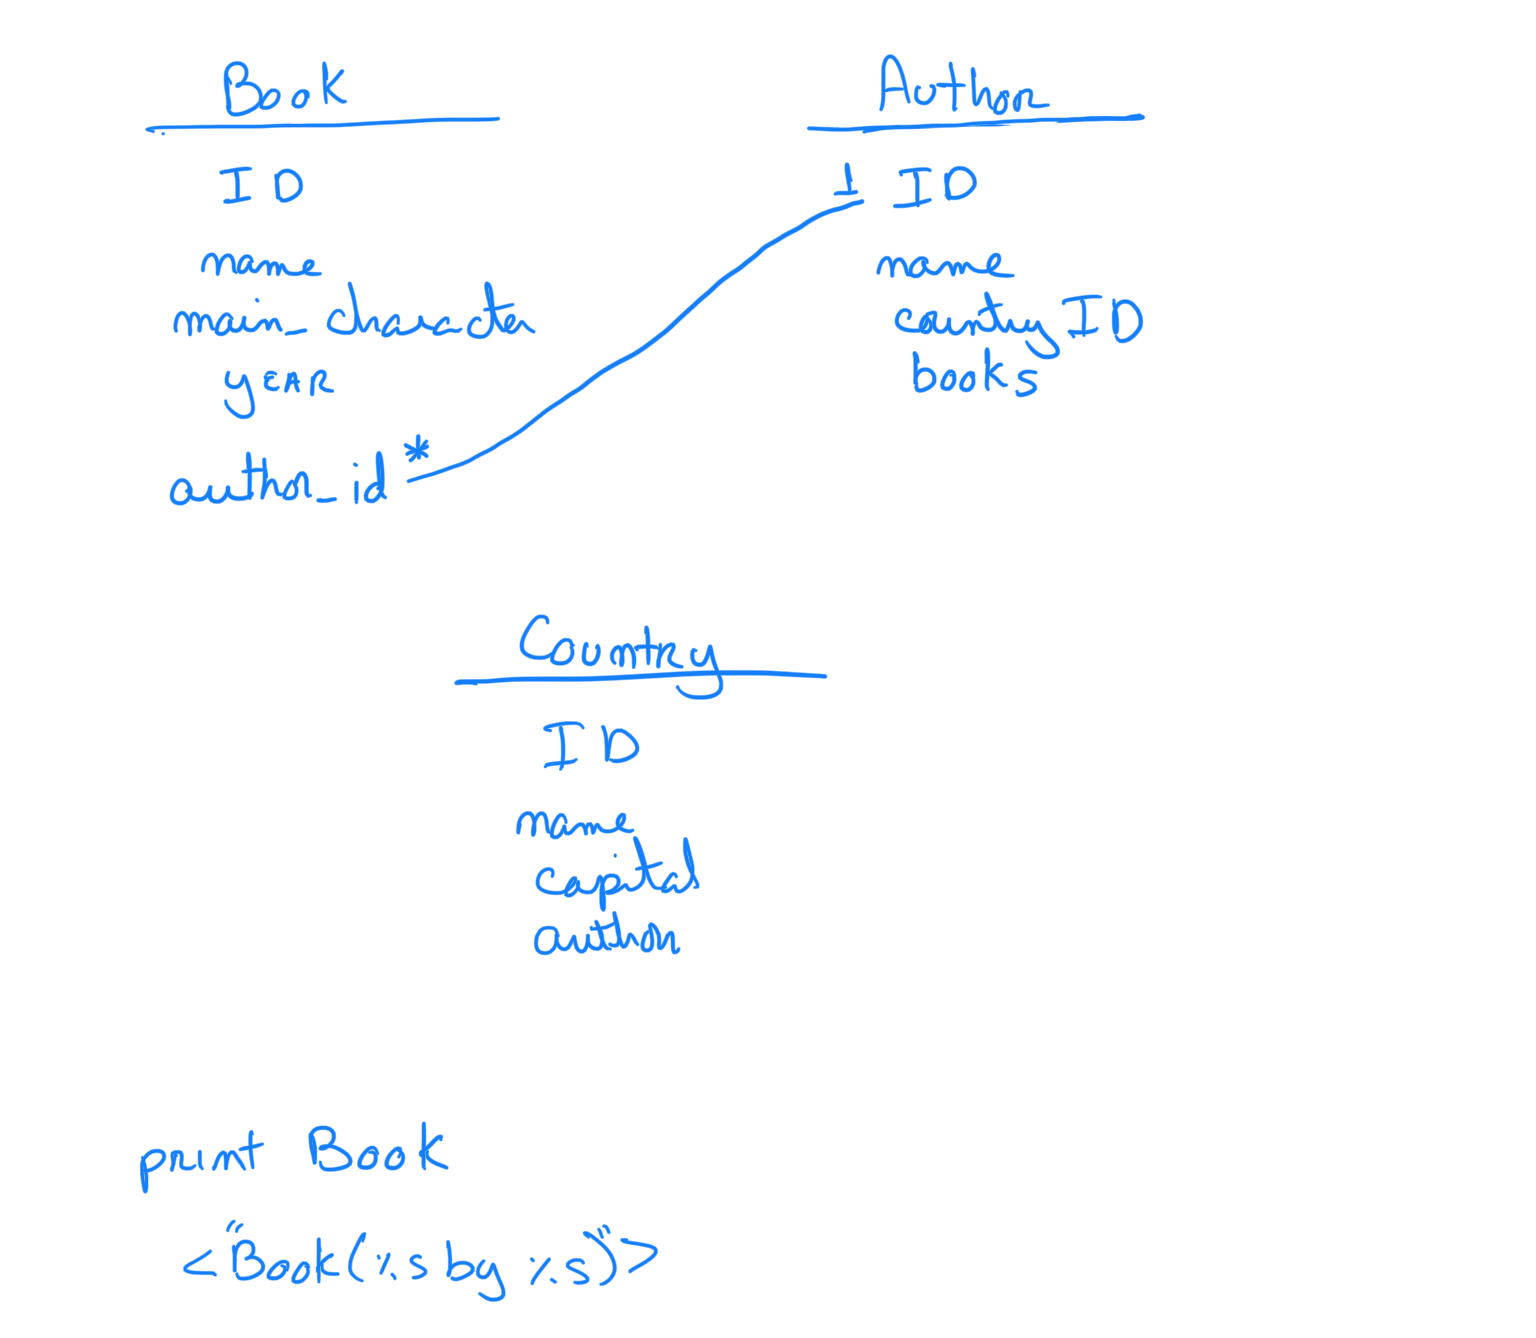 Book
ID
name
main_character
YEAR
author_id *
Author
1 ID
name
country ID
books
Country
ID
name
capital
author
print Book
<"Book(%s by %s)">